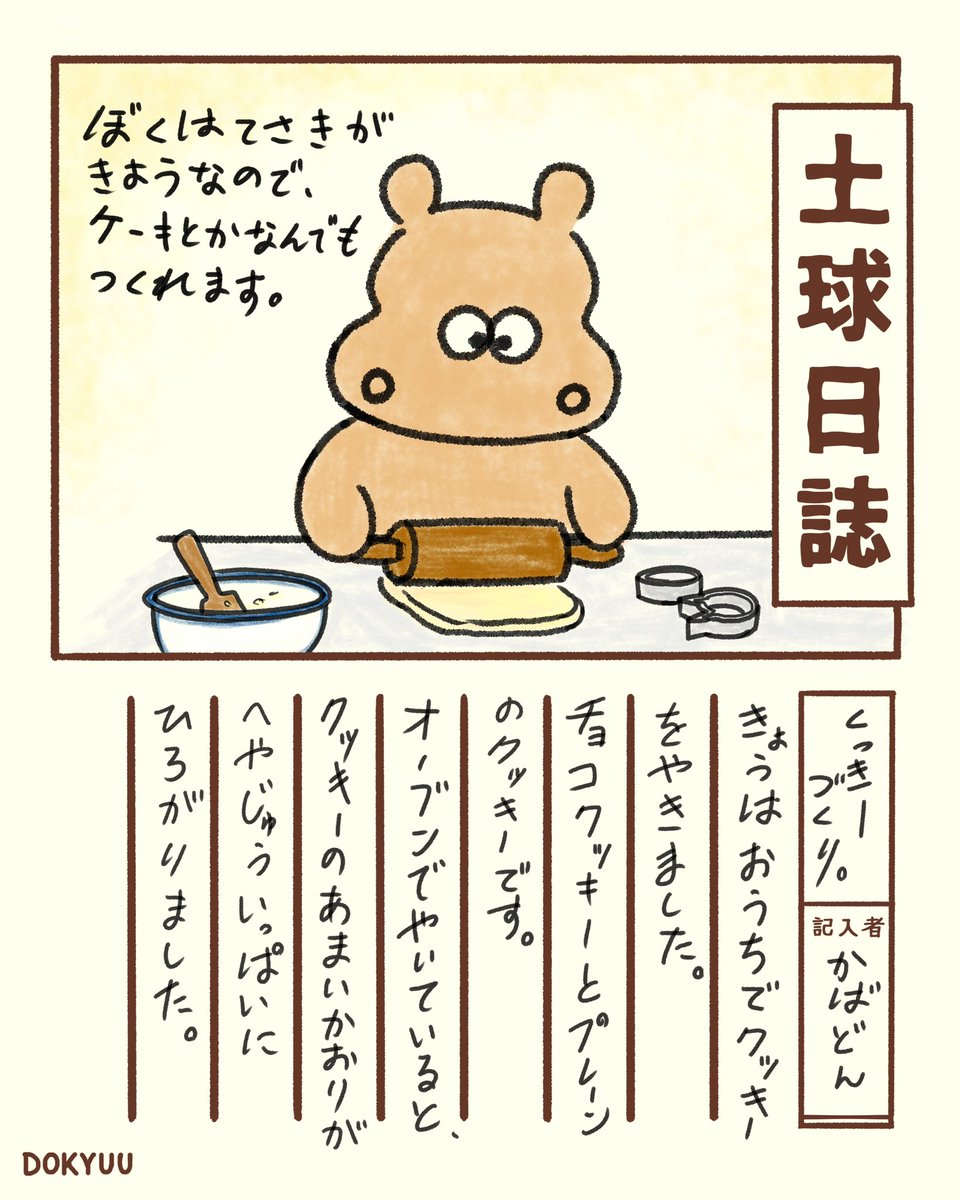 土球日誌
ぼくはてさきが
きようなので、
ケーキとかなんでも
つくれます。
くっきー
づくり。
記入者
かばどん
きょうはおうちでクッキー
をやきました。
チョコクッキーとプレーン
のクッキーです。
オーブンでやいていると、
クッキーのあまいかおりが
へやじゅういっぱいに
ひろがりました。
DOKYUU